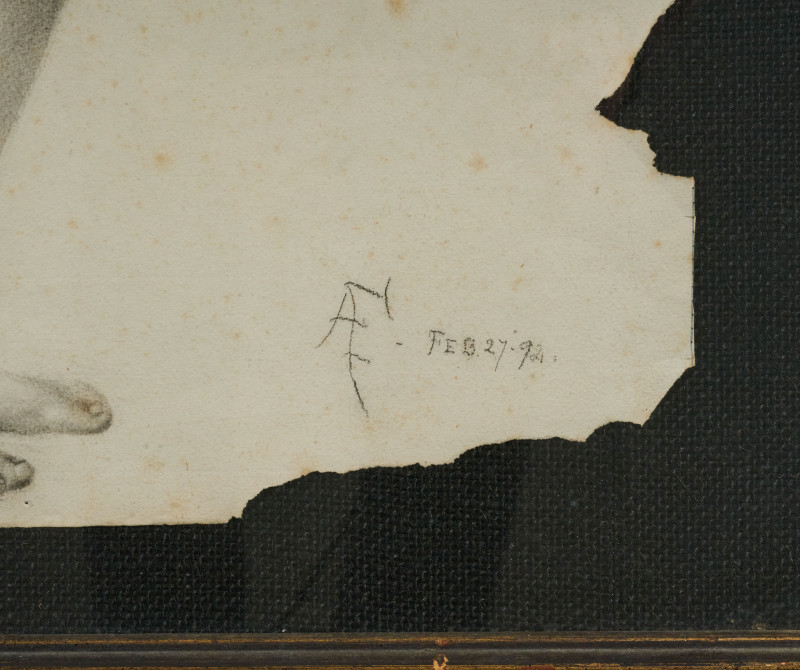 AF - FEB. 27. 92.